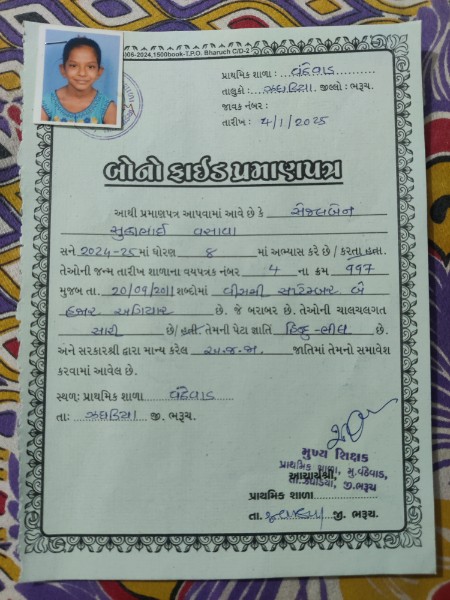 005-2024,1500book-T.P.O. Bharuch C/D-2
પ્રાથમિક શાળા : વંઠેવાડ
તાલુકો : ઝઘડિયા જીલ્લો : ભરૂચ.
જાવક નંબર :
તારીખ : 4/1/2025
બોનોફાઈડ પ્રમાણપત્ર
આથી પ્રમાણપત્ર આપવામાં આવે છે કે સેજલબેન
વસાવા
સને 2024-25 માં ધોરણ 8 માં અભ્યાસ કરે છે / કરતા હતા.
તેઓની જન્મ તારીખ શાળાના વયપત્રક નંબર 4 ના ક્રમ 997
મુજબ તા. 20/09/2011 શબ્દોમાં વીસમી સપ્ટેમ્બર બે
હજાર અગિયાર છે. જે બરાબર છે. તેઓની ચાલચલગત
સારી છે/ હતી. તેમની પેટા જ્ઞાતિ હિન્દુ-ભીલ છે.
અને સરકારશ્રી દ્વારા માન્ય કરેલ અ.જ.જા. જાતિમાં તેમનો સમાવેશ
કરવામાં આવેલ છે.
સ્થળ: પ્રાથમિક શાળા વંઠેવાડ
તા: ઝઘડિયા જી. ભરૂચ.
મુખ્ય શિક્ષક
પ્રાથમિક શાળા, મુ.વંઠેવાડ,
આચાર્યશ્રી,
તા. ઝઘડિયા, જી.ભરૂચ
પ્રાથમિક શાળા
તા. ઝઘડિયા જી. ભરૂચ.